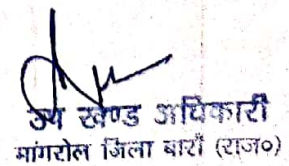 उप खण्ड अधिकारी
मांगरोल जिला बारों (राज०)